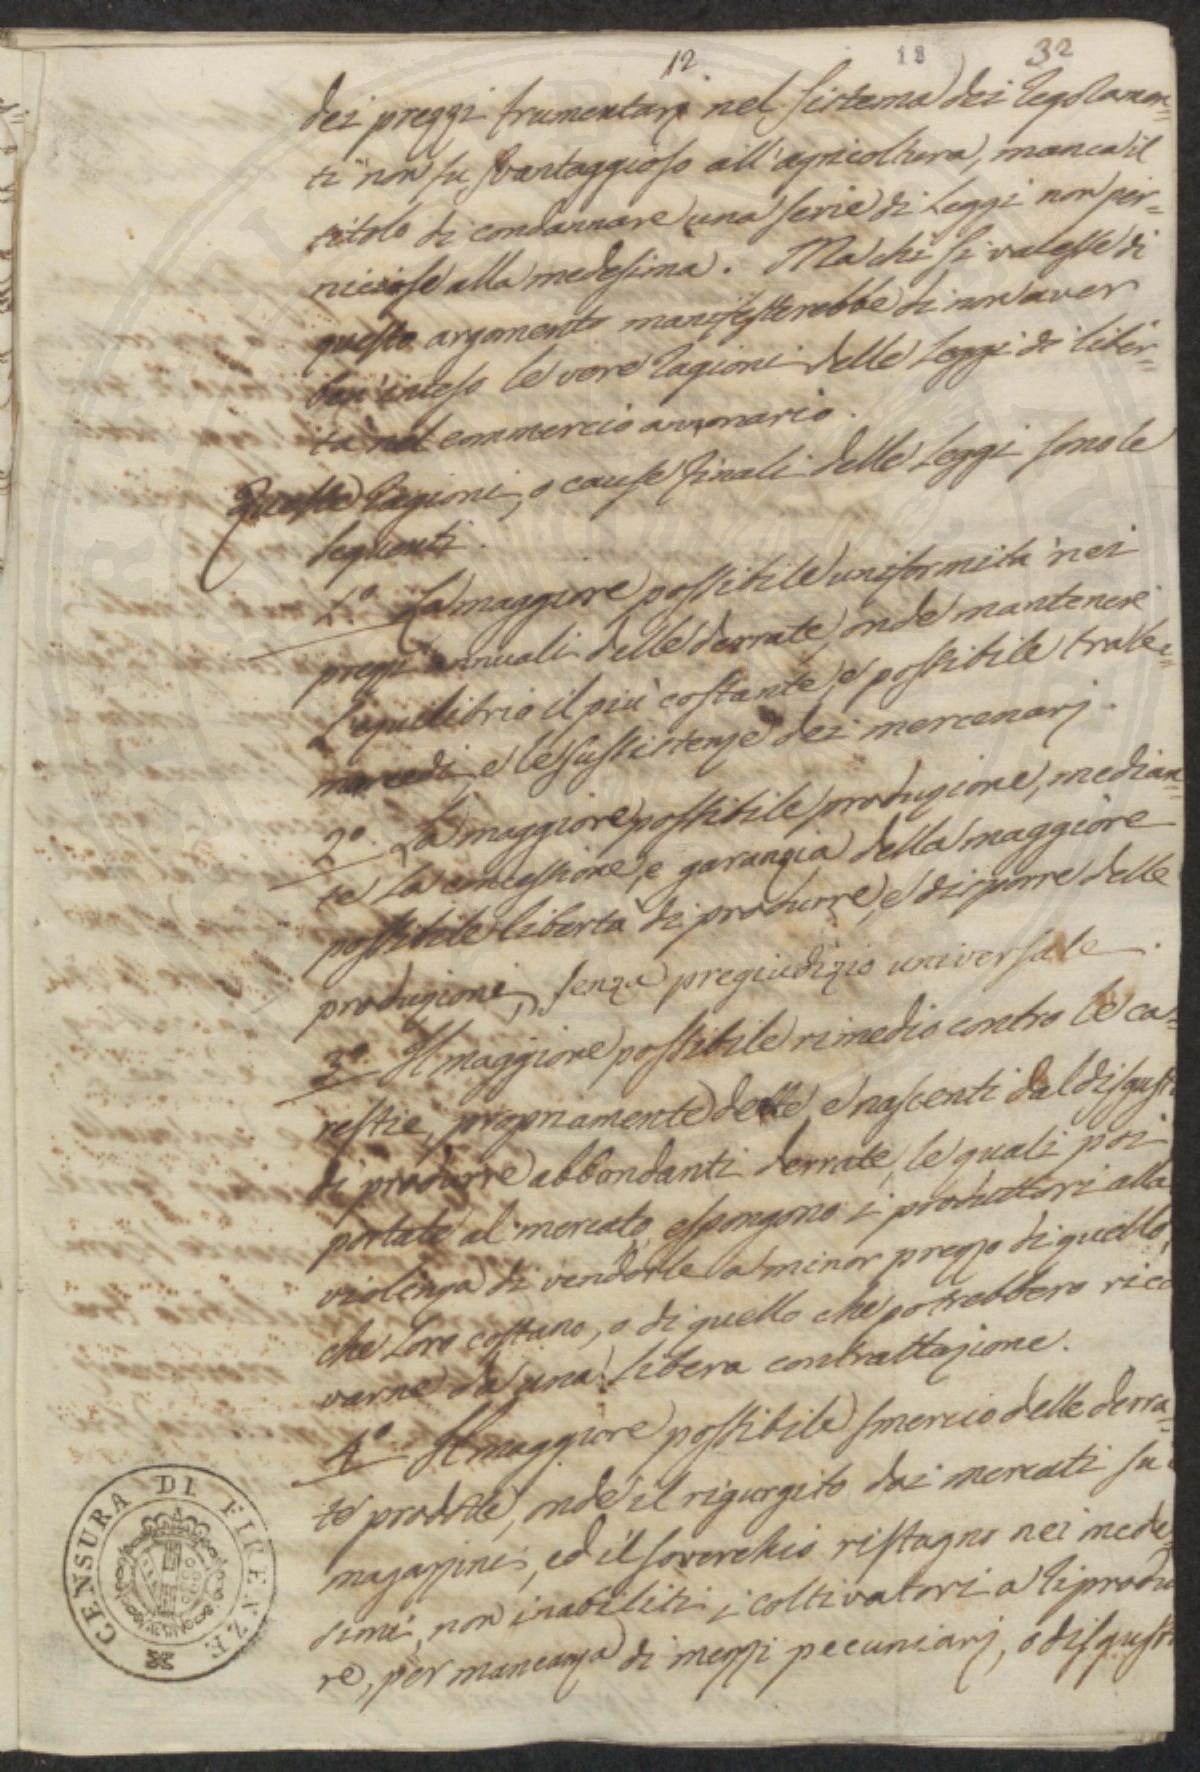 12 12 32
dei prezzi frumentarj nel sistema dei regolamen=
ti non fu svantaggioso all'agricoltura, manca il
titolo di condannare una serie di Leggi non per=
niciose alla medesima. Ma chi si valesse di
questo argomento manifesterebbe di non aver
ben' inteso le vere ragioni delle Leggi di liber=
tà nel commercio annonario.
Queste ragioni, o cause finali delle Leggi sono le
seguenti.
1.° La maggiore possibile uniformità nei
prezzi annuali delle derrate, onde mantenere
l'equilibrio il più costante, e possibile tra le=
mercedi, e le sussistenze dei mercenarj.
2.° La maggiore possibile produzione, median=
te la concessione, e garanzia della maggiore
possibile libertà di produrre, e disporre delle
produzioni, senza pregiudizio universale.
3.° Il maggiore possibile rimedio contro le ca=
restie, propriamente dette, e nascenti dal disgusto
di produrre abbondanti derrate, le quali poi
portate al mercato espongono i produttori alla
violenza di venderle a minor prezzo di quello,
che loro costano, o di quello che potrebbero rica
varne da una libera contrattazione.
4.° Il maggiore possibile smercio delle derra=
te prodotte, onde il rigurgito dai mercati su i
magazzini, ed il soverchio ristagno nei mede
simi, non inabiliti i coltivatori a riprodu
re, per mancanza di mezzi pecuniarj, o disgusti
CENSURA DI FIRENZE